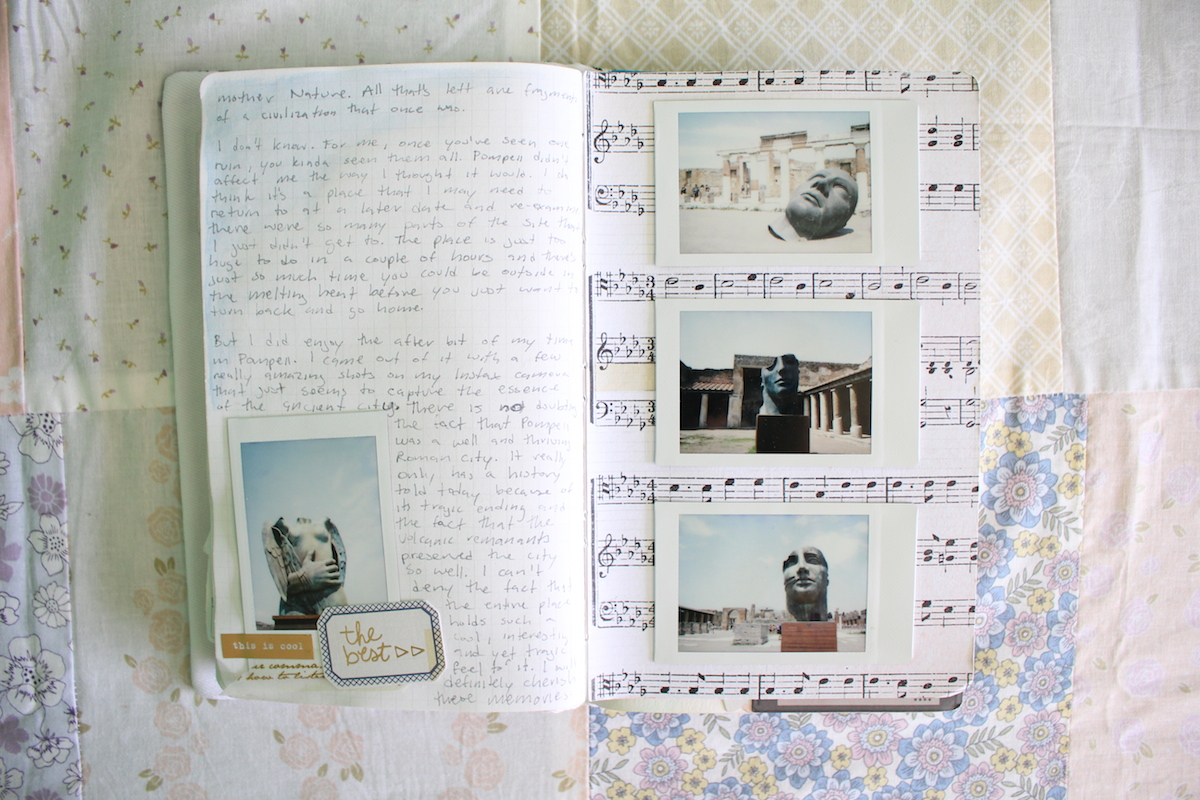 mother Nature. All that's left are fragments
of a civilization that once was.
I don't know. For me, once you've seen one
ruin, you kinda seen them all. Pompeii didn't
affect me the way I thought it would. I
think it's a place that I may need to
return to at a later date and re-examine
there were so many parts of the site that
I just didn't get to. The place is just too
huge to do in a couple of hours and there's
just so much time you could be outside in
the melting heat before you just want to
turn back and go home.
But I did enjoy the after bit of my time
in Pompeii. I came out of it with a few
really amazing shots on my Instax camera
that just seems to capture the essence
of the ancient city. There is no doubting
the fact that Pompeii
was a well and thriving
Roman city. It really
only has a history
told today because of
its tragic ending and
the fact that the
volcanic remanants
preserved the city
so well. I can't
deny the fact that
the entire place
holds such a
cool, interesting
and yet tragic
feel to it. I will
definitely cherish
these memories
this is cool
how to
the
best
3
4
3
4
3
4
4
4
4
4
4
4